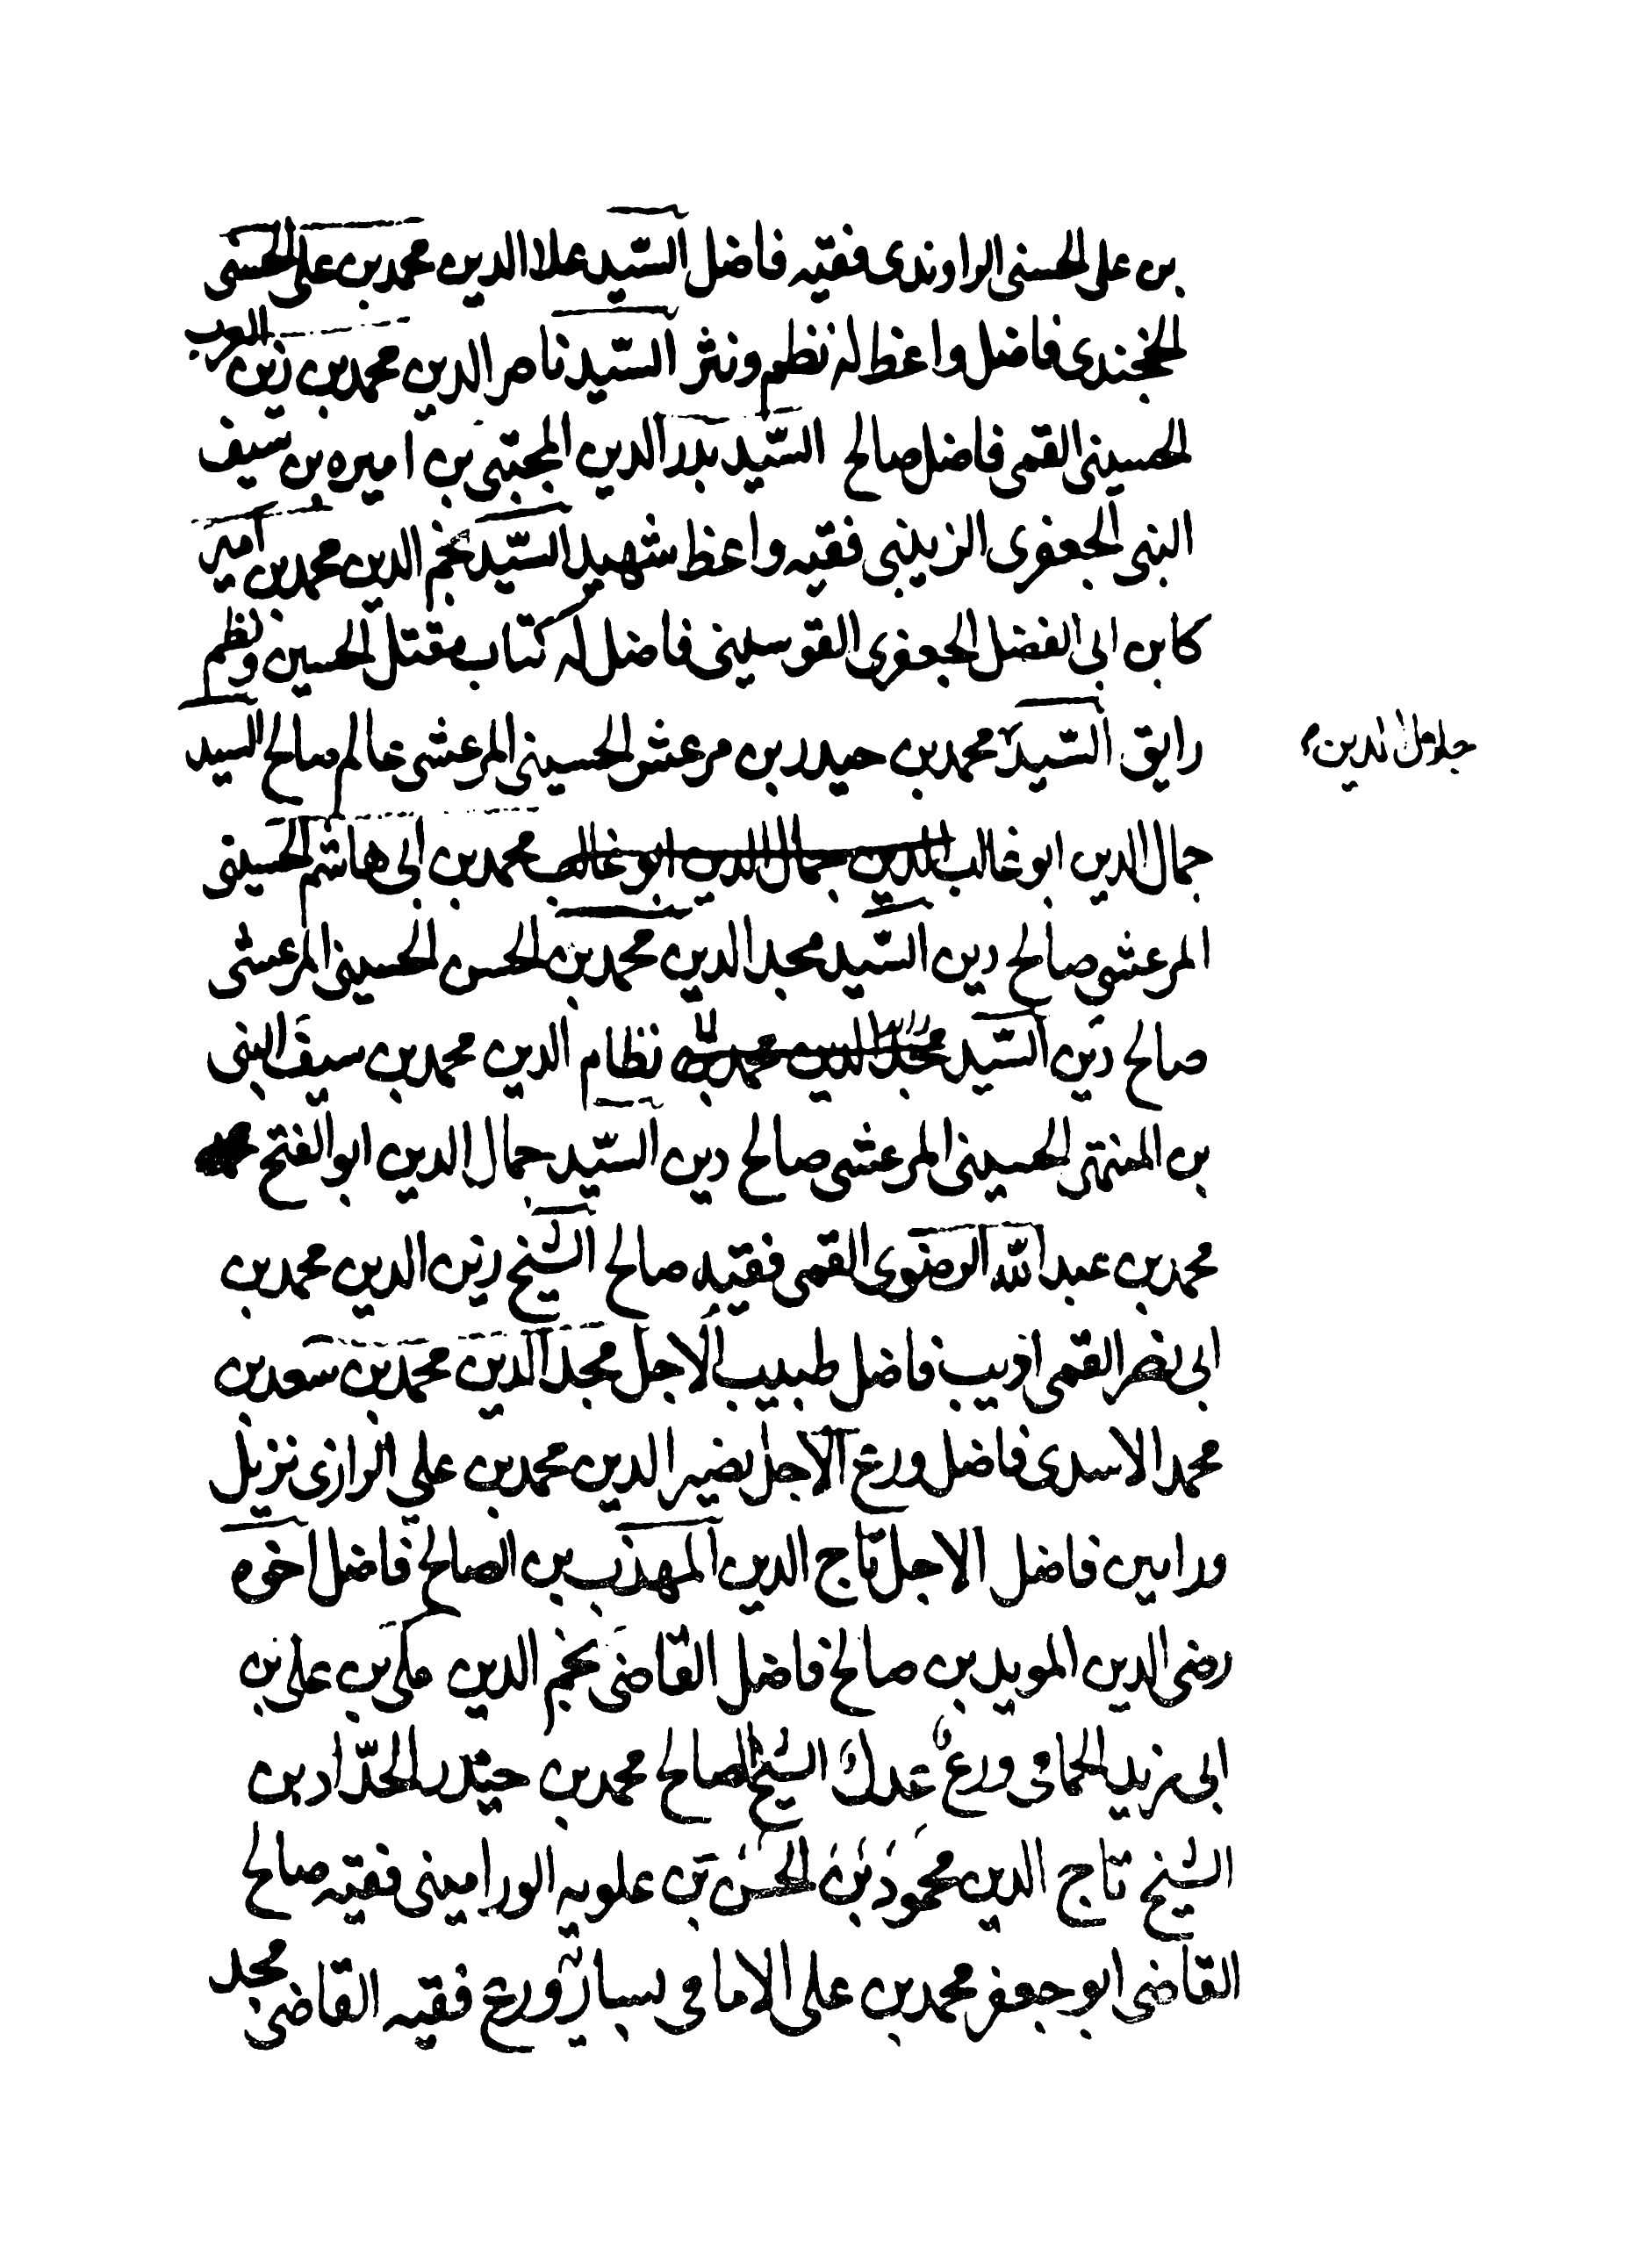 بن على الحسنى الراوندى فقيه فاضل السّيد علاء الدين محمد بن على الحسنى
الخجندى فاضل واعظ له نظم ونثر السّيد ناصر الدين محمد بن زين العرب
الحسينى القمى فاضل صالح السّيد بدر الدين المجتبى بن اميره بن سيف
النبى الجعفرى الزينبى فقيه واعظ شهيد السّيد نجم الدين محمد بن امير
كا بن ابى الفضل الجعفرى القوسينى فاضل له كتاب مقتل الحسين ونظم
رايق السّيد محمد بن حيدر بن مرعش الحسينى المرعشى عالم صالح السيد
جلال الدين م
جمال الدين ابو غالب الدين جمال الدين ابو غالب محمد بن ابى هاشم الحسينى
المرعشى صالح دين السّيد مجد الدين محمد بن الحسن الحسينى المرعشى
صالح دين السّيد مجد الدين محمد بن نظام الدين محمد بن سيف النبى
بن المنتهى الحسينى المرعشى صالح دين السّيد جمال الدين ابو الفتح
محمد بن عبد الله الرضوى القمى فقيه صالح الشيخ زين الدين محمد بن
ابى نصر القمى اديب فاضل طبيب الاجل مجد الدين محمد بن سعد بن
محمد الاسدى فاضل ورع الاجل نصير الدين محمد بن علي الرازى نزيل
ورامين فاضل الاجل تاج الدين المهذب بن الصالح فاضل اخوه
رضى الدين المويد بن صالح فاضل القاضى نجم الدين مكى بن على بن
ابى زيد الحمامى ورع عدل الشيخ الصالح محمد بن حيدر الحدّاد بن
الشيخ تاج الدين محمود بن الحسن بن علويه الورامينى فقيه صالح
القاضى ابو جعفر محمد بن على الامامى بسارية ورع فقيه القاضى مجد